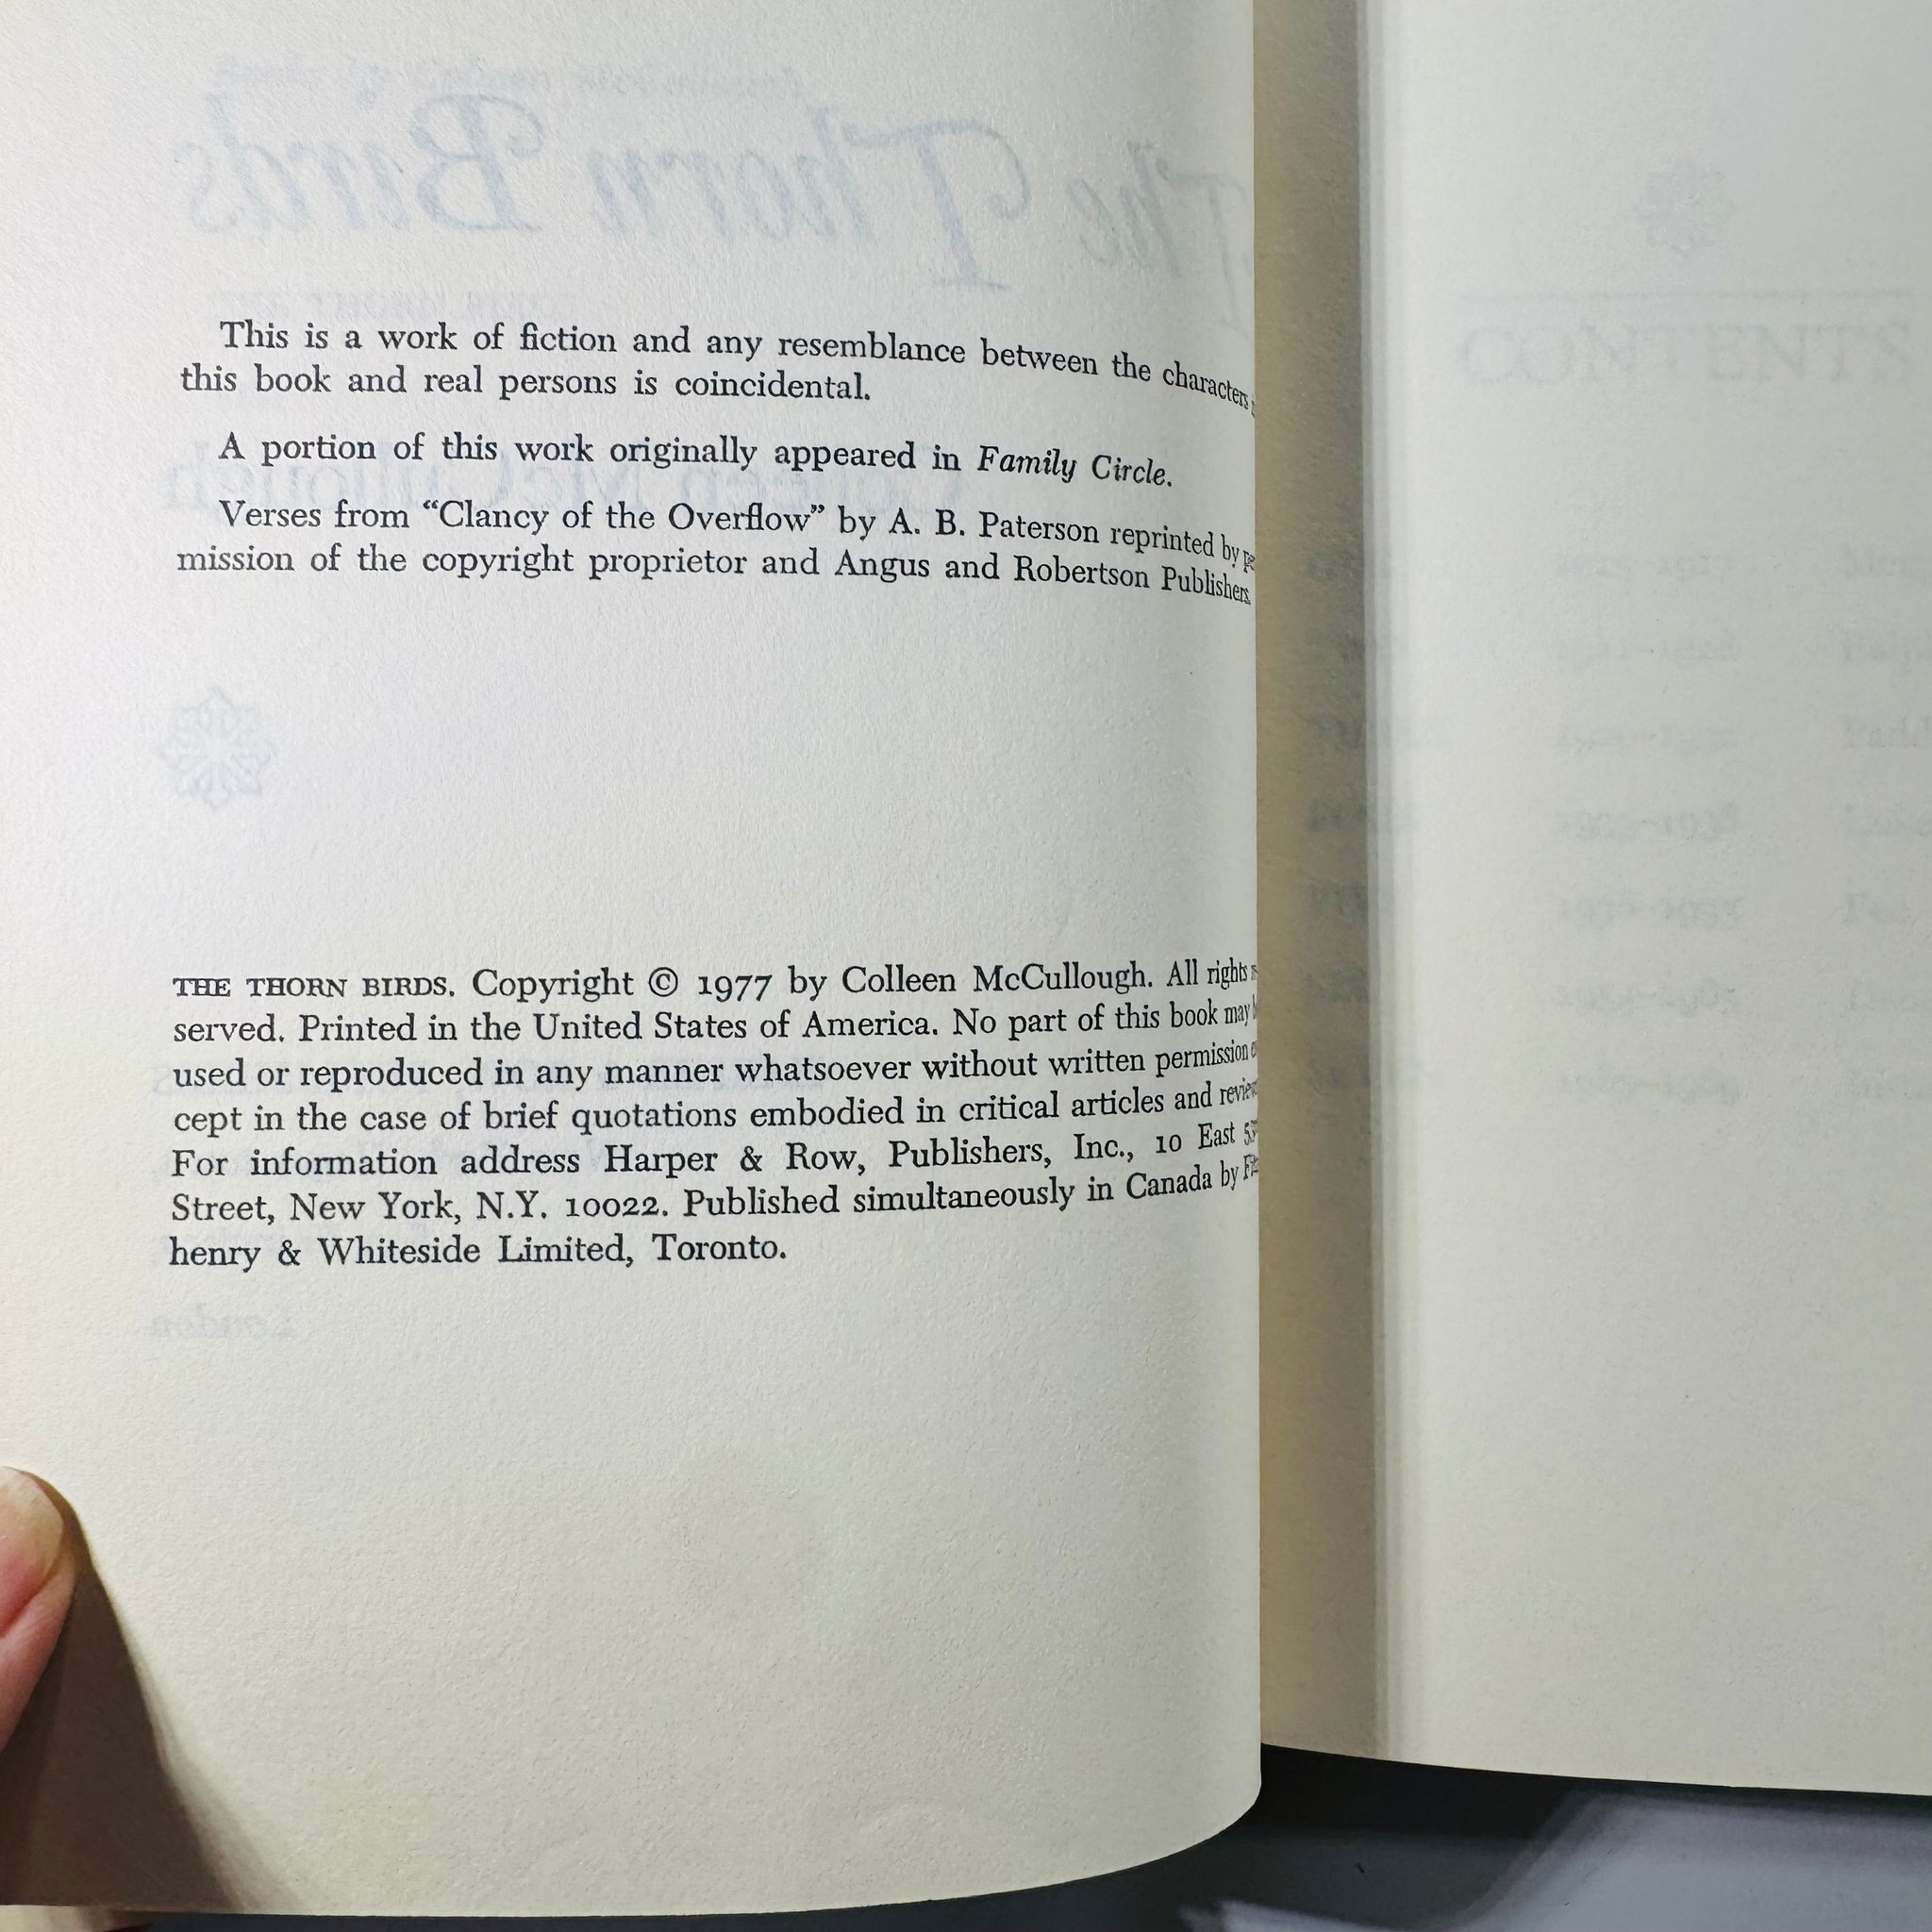 The Thorn Birds
This is a work of fiction and any resemblance between the characters
this book and real persons is coincidental.
A portion of this work originally appeared in Family Circle.
Verses from “Clancy of the Overflow” by A. B. Paterson reprinted by
mission of the copyright proprietor and Angus and Robertson Publishers
THE THORN BIRDS. Copyright © 1977 by Colleen McCullough. All rights
served. Printed in the United States of America. No part of this book may
used or reproduced in any manner whatsoever without written permission
cept in the case of brief quotations embodied in critical articles and
For information address Harper & Row, Publishers, Inc., 10 East
Street, New York, N.Y. 10022. Published simultaneously in Canada by
henry & Whiteside Limited, Toronto.
London